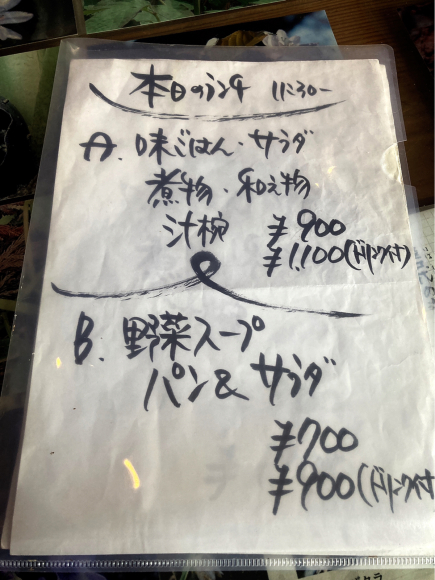 本日のランチ 11:30-
A. 味ごはん・サラダ
煮物・和え物
汁椀 ¥900
¥1,100(ドリンク付)
B. 野菜スープ
パン&サラダ
¥700
¥900(ドリンク付